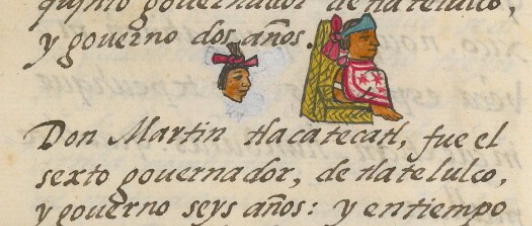 quinto gouernador de tlatelulco,
y gouerno dos, años.
Don Martin tlacatecatl, fue el
sexto gouernador, de tlatelulco,
y gouerno seys años: y entiempo